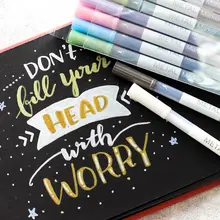 DON'T
fill your
HEAD
with
WORRY
METAL